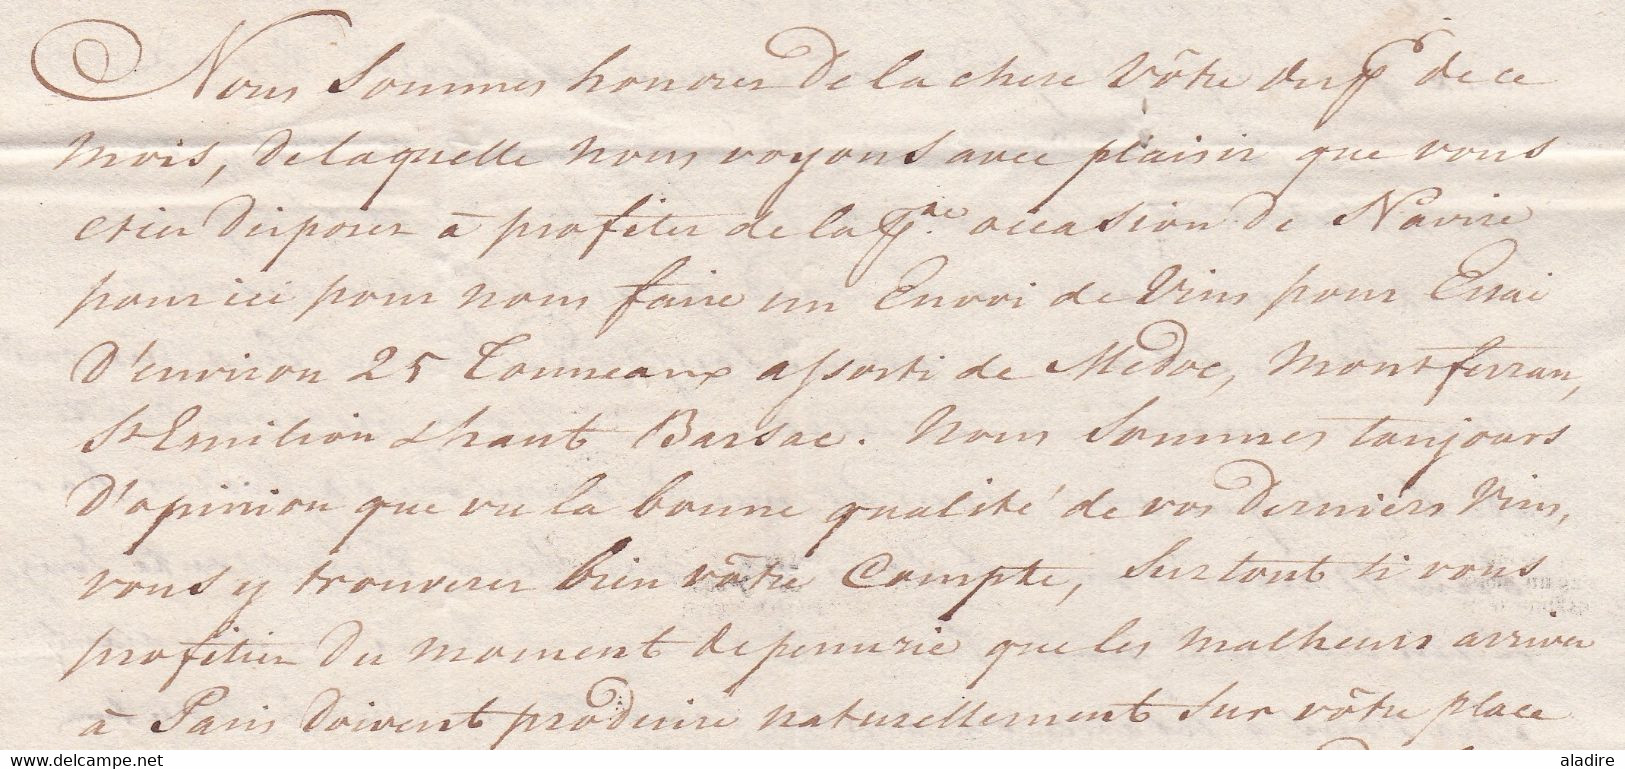 Nous Sommes honorés De la chere Vôtre du de ce
mois, De laquelle nous voyons avec plaisir que vous
etiez Disposer à profiter de la pre. occasion De Navire
pour ici pour nous faire un Envoi de Vins pour Essai
D'environ 25 Tonneaux assorti de Medoc, Montferran,
St Emilion & haut Barsac. Nous Sommes toujours
D'opinion que vu la bonne qualité de vos Derniers Vins,
vous y trouverez bien vôtre Compte, Surtout si vous
profitiez Du moment de penurie que les malheurs arrivés
à Paris Doivent produire naturellement Sur vôtre place
delcampe.net
aladire